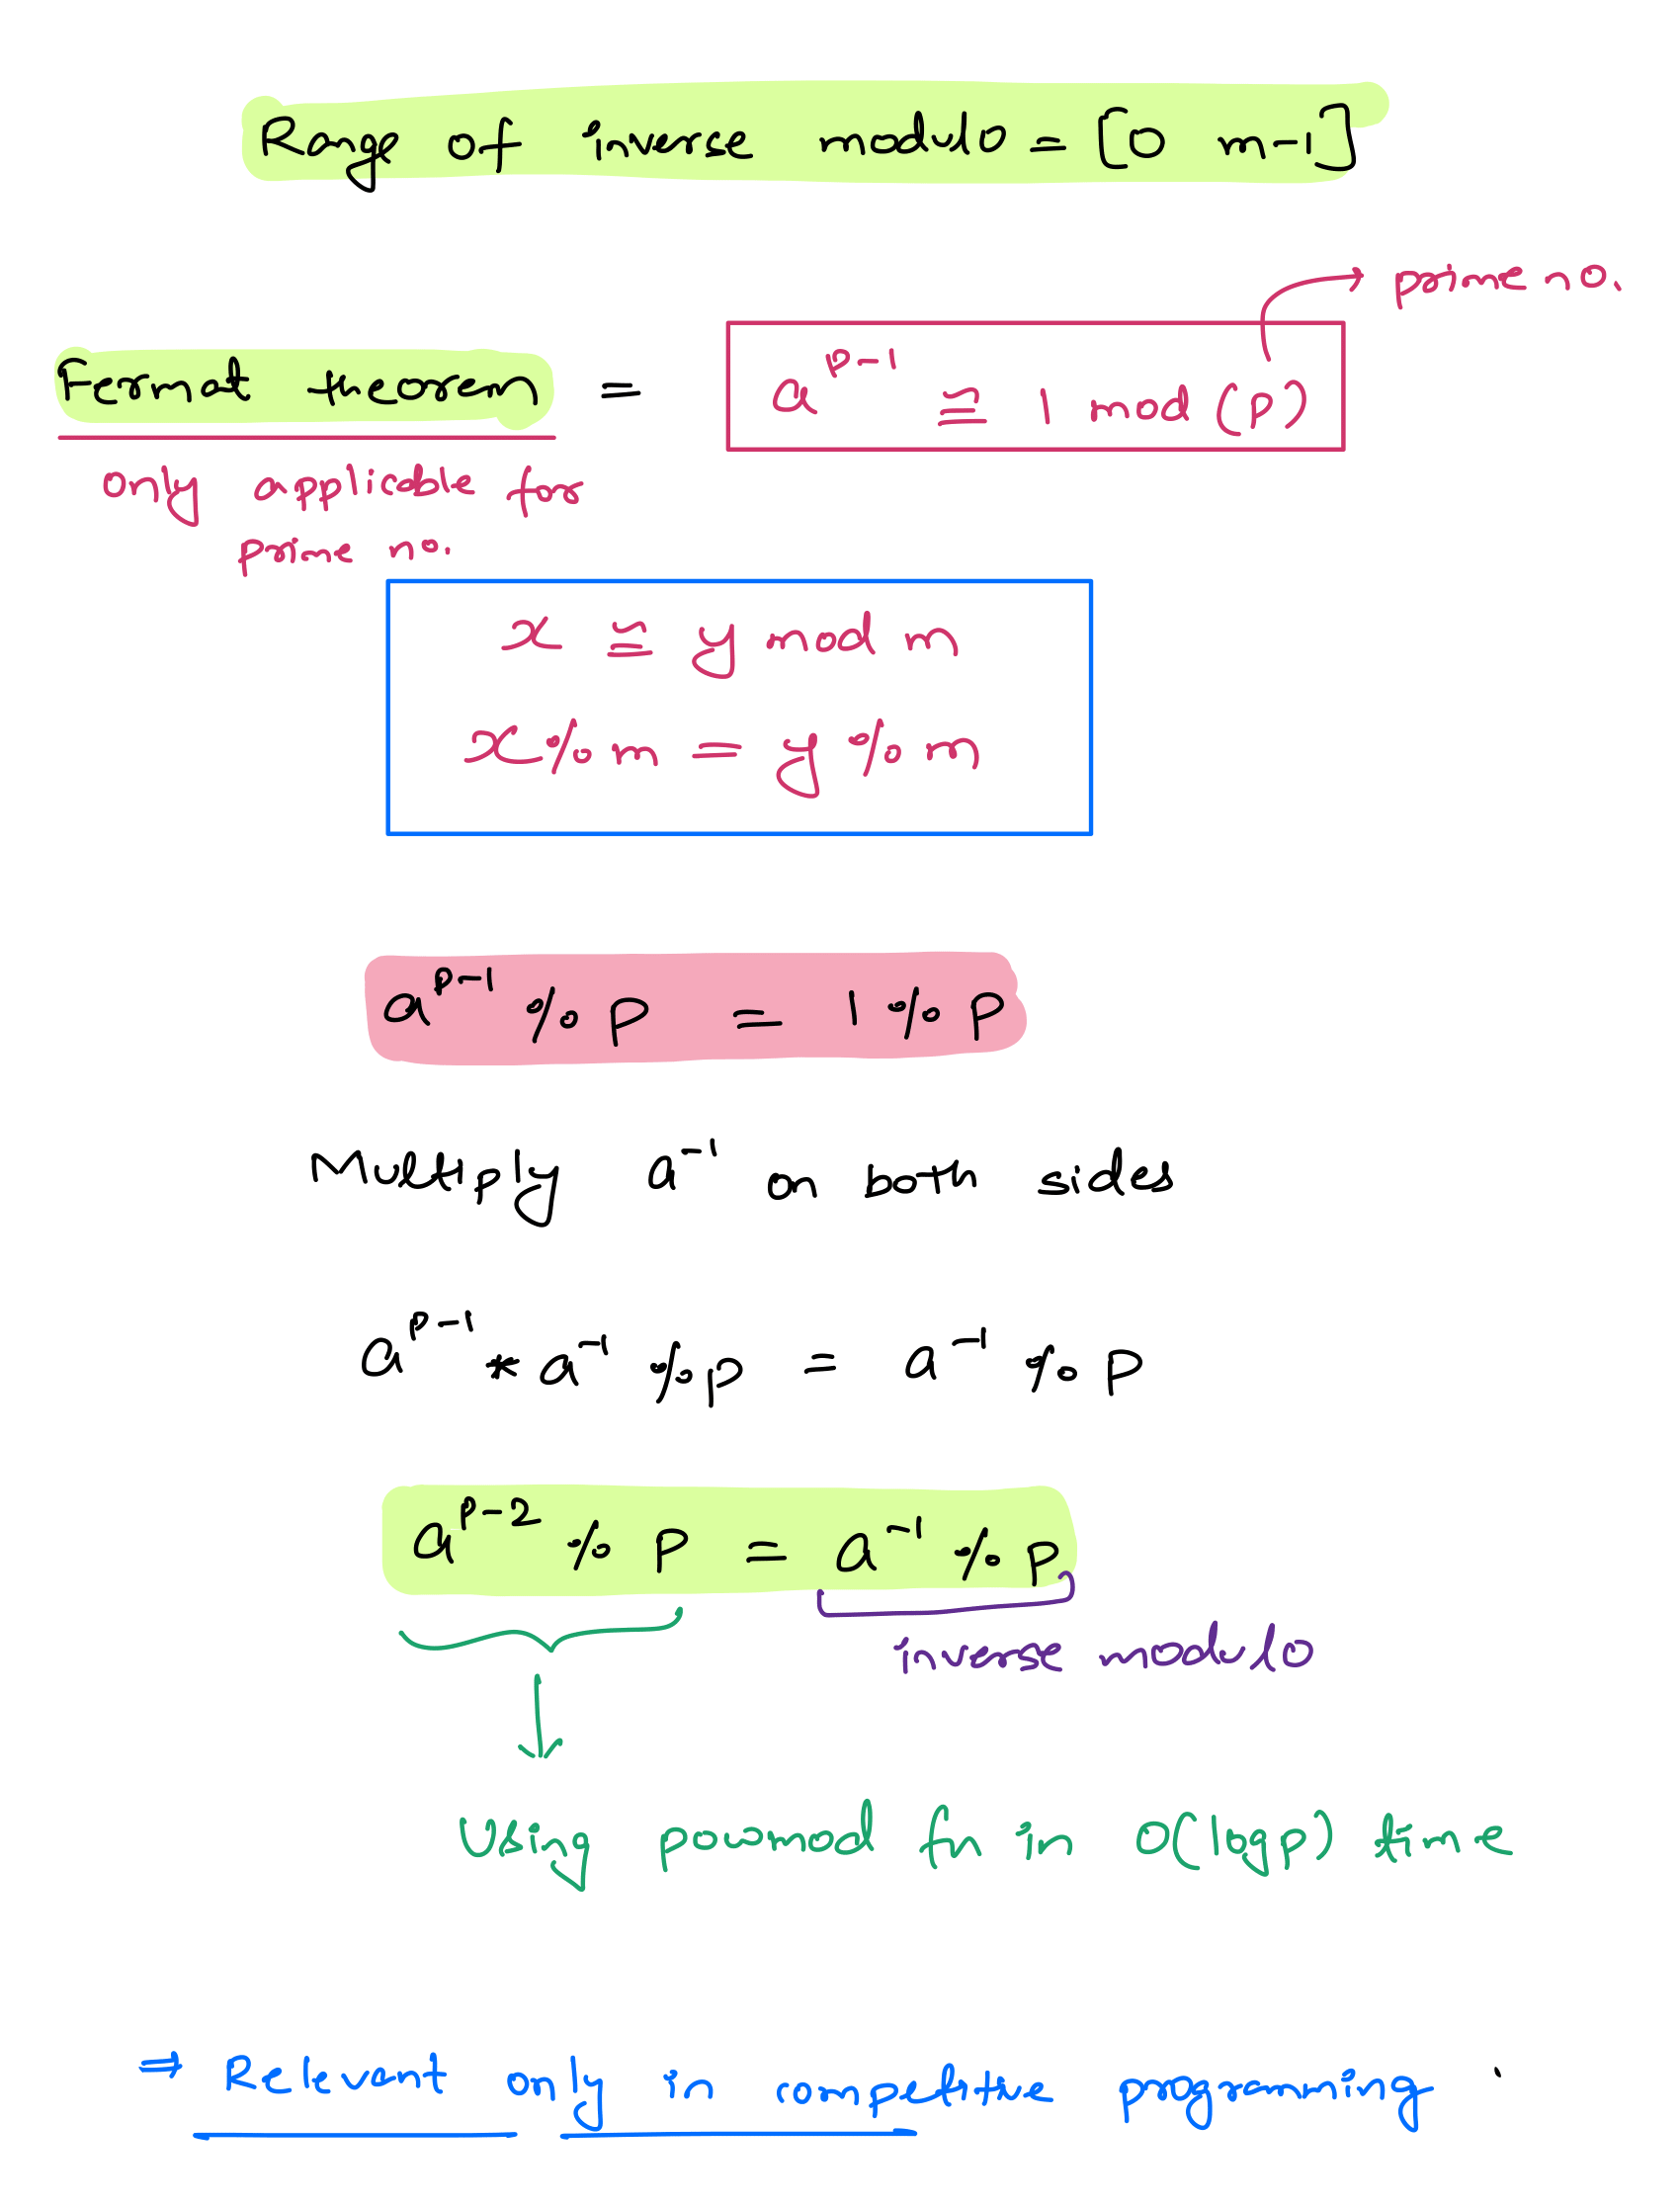 Range of inverse modulo = [0 m-1]
prime no.
Fermat theorem = a^{p-1} ≅ 1 mod (p)
only applicable for
prime no.
x ≅ y mod m
x % m = y % m
a^{p-1} % p = 1 % p
Multiply a^{-1} on both sides
a^{p-1} * a^{-1} % p = a^{-1} % p
a^{p-2} % p = a^{-1} % p
inverse modulo
Using powmod fn in O(log p) time
⇒ Relevant only in competitive programming .